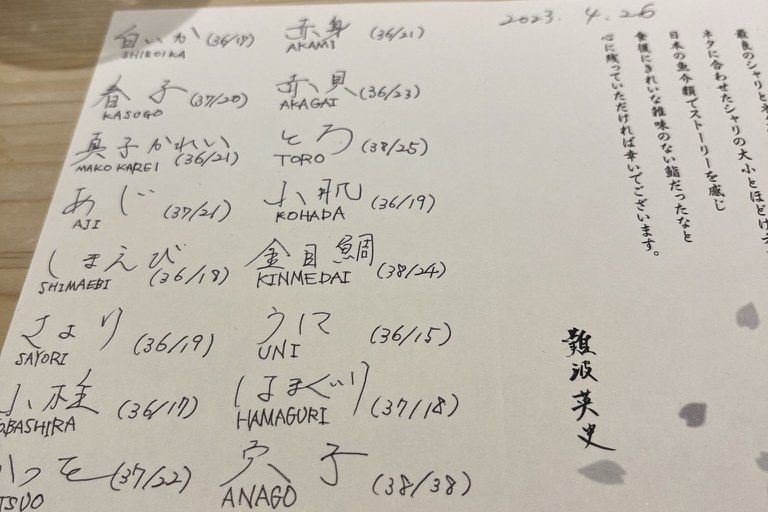 2023. 4. 26
白いか (36/17)
SHIROIKA
春子 (37/20)
KASOGO
真子かれい (36/21)
MAKO KAREI
あじ (37/21)
AJI
しまえび (36/18)
SHIMAEBI
さより (36/19)
SAYORI
小柱 (36/17)
OBASHIRA
つを (37/22)
TSUO
赤身 (36/21)
AKAMI
赤貝 (36/23)
AKAGAI
とろ (38/25)
TORO
小肌 (36/19)
KOHADA
金目鯛 (38/24)
KINMEDAI
うに (36/15)
UNI
はまぐり (37/18)
HAMAGURI
穴子 (38/38)
ANAGO
最良のシャリとネ
ネタに合わせたシャリの大小とほどけ
日本の魚介類でストーリーを感じ
食後にきれいな雑味のない鮨だったなと
心に残っていただければ幸いでございます。
難波英史